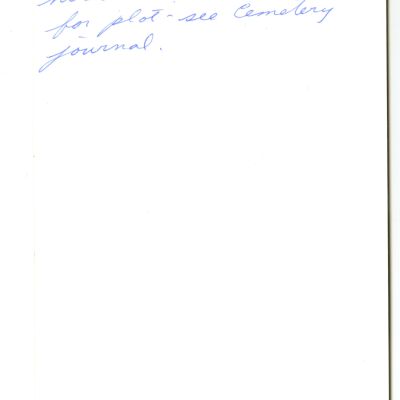 for plot - see Cemetery
journal.